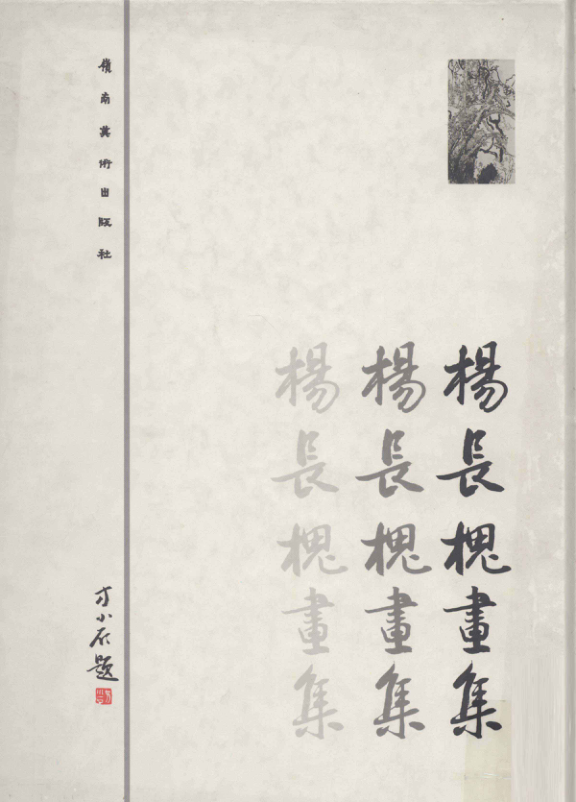 楊長槐畫集
楊長槐畫集
楊長槐畫集
嶺南美術出版社
方小石題